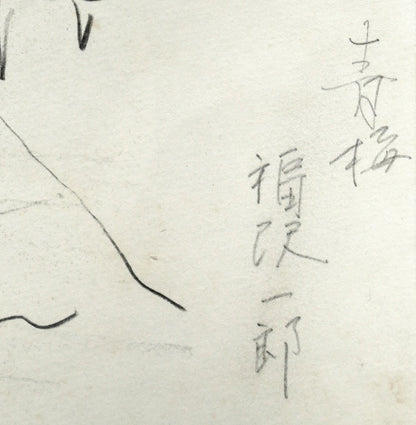 青梅
福沢一郎